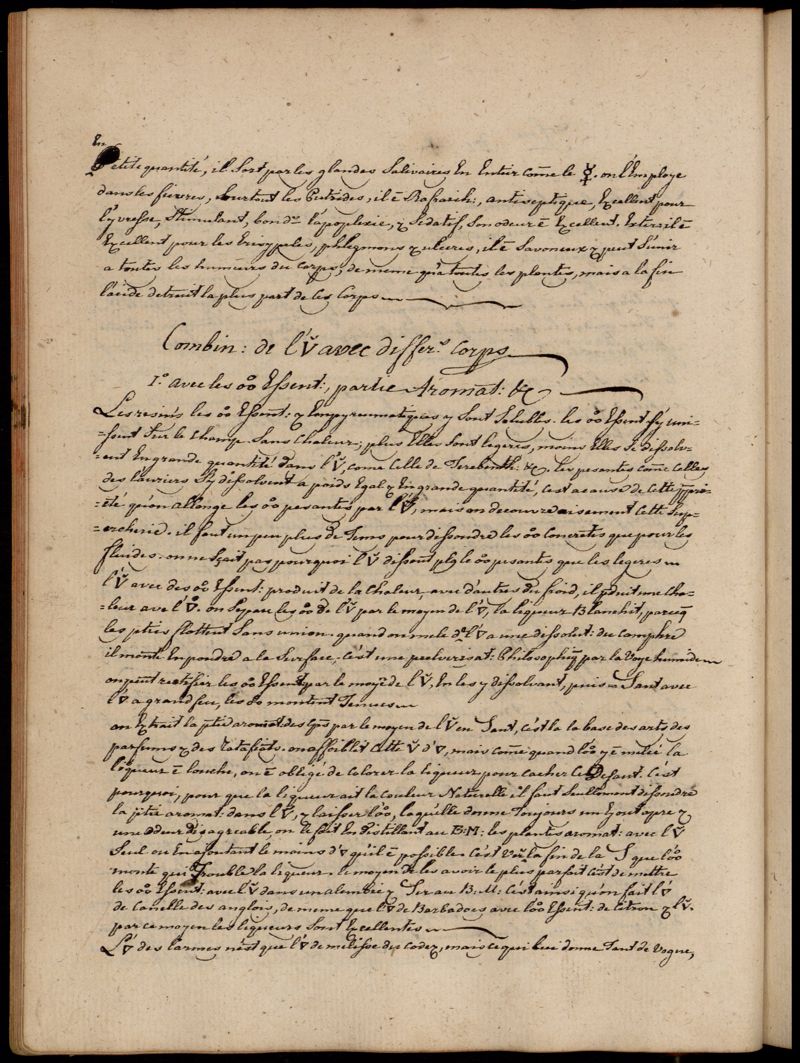 En
petite quantité, il sort par les glandes Salivaires En Entier come le ☿. on l'Employe
dans les fievres, surtout les Putrides, il ē Rafraich:, antiseptique, Excellent pour
l'yvresse, Stimulant, bon dns l'apoplexie, & Sedatif, Son odeur ē Excellent. Exterit ē
Excellent pour les Erisypeles, phlegmons & ulceres, il ē Savoneux & peut S'unir
a toutes les humeurs du Corps, de meme qu'a toutes les plantes, mais a la fin
l'acide detruit la plus part de ces Corps
Combin: de l'🜄 avec differ.s Corps
1.o avec les oo Essent:, partie Aromat: &c
Les resines les oo Essent: & Empyreumatiques y sont Solubles. les oo Essent s'y uni-
-ssent Sur le champ Sans Chaleur; plus Elles Sont legeres, moins Elles Se dissolv-
-ent En grande quantité dans l'🜄, come Celle de Terebinth: &c. les pesantes come Celles
des lauriers S'y dissolvent a poids Egal & En grande quantité, c'est a cause de Cette propri-
-été qu'on allonge les oo pesantes par l'🜄, mais on decouvre aisement Cette Sup-
-ercherie. il faut un peu plus de Tems pour dissoudre les oo Concretes que pour les
fluides. on ne sçait pas pourquoi l'🜄 dissout plus les oo pesantes que les legeres
l'🜄 avec des oo Essent: produit de la Chaleur avec d'autres du froid, il produit une Cha-
-leur avec l'🜄. on Separe les oo de l'🜄 par le moyen de l'🜄, la liqueur Blanchit, parceq
les pties flottent Sans union. quand on mele de l'🜄 a une dissolut: du Camphre
il monte En poudre a la Surface. C'est une pulverisat: Philosophiq par la Voye humide
on peut rectifier les oo Essent par le moyen de l'🜄, En les y dissolvant, puis Sant avec
l'🜄 a grand feu, les oo montent Tenues
on Extrait la ptie aromat des Cps par le moyen de l'🜄 en Sant, C'est la la base des arts des
parfums & des ratafiats. on affoiblit cette 🜄 d'🜄, mais come quand l'oo y ē melée la
liqueur ē louche, on ē obligé de Colorer la liqueur pour cacher Ce Defaut. C'est
pourquoi, pour que la liqueur ait la Couleur Naturelle il faut Seullement dissoudre
la ptie aromat: dans l'🜄, & laisser l'oo, laquelle donne Toujours un gout apre &
une odeur Desagreable, on le fait En Distillant au B:M: les plantes aromat: avec l'🜄
Seul ou En ajoutant le moins d'🜄 qu'il ē possible. C'est Vers la fin de la que l'oo
monte qui Trouble la liqueur. le moyen de les avoir le plus parfait C'est de mettre
les oo Essent: avec l'🜄 dans un alambic & Ser au B:M: C'est ainsi qu'on fait l'🜄
de Canelle des anglois, de meme que l'🜄 de Barbades avec l'oo Essent: de Citron & l'🜄.
par ce moyen les liqueurs Sont Excellentes
L'🜄 des Carmes n'est que l'🜄 de melisse du Codex, mais ce qui lui donne Tant de Vogue,